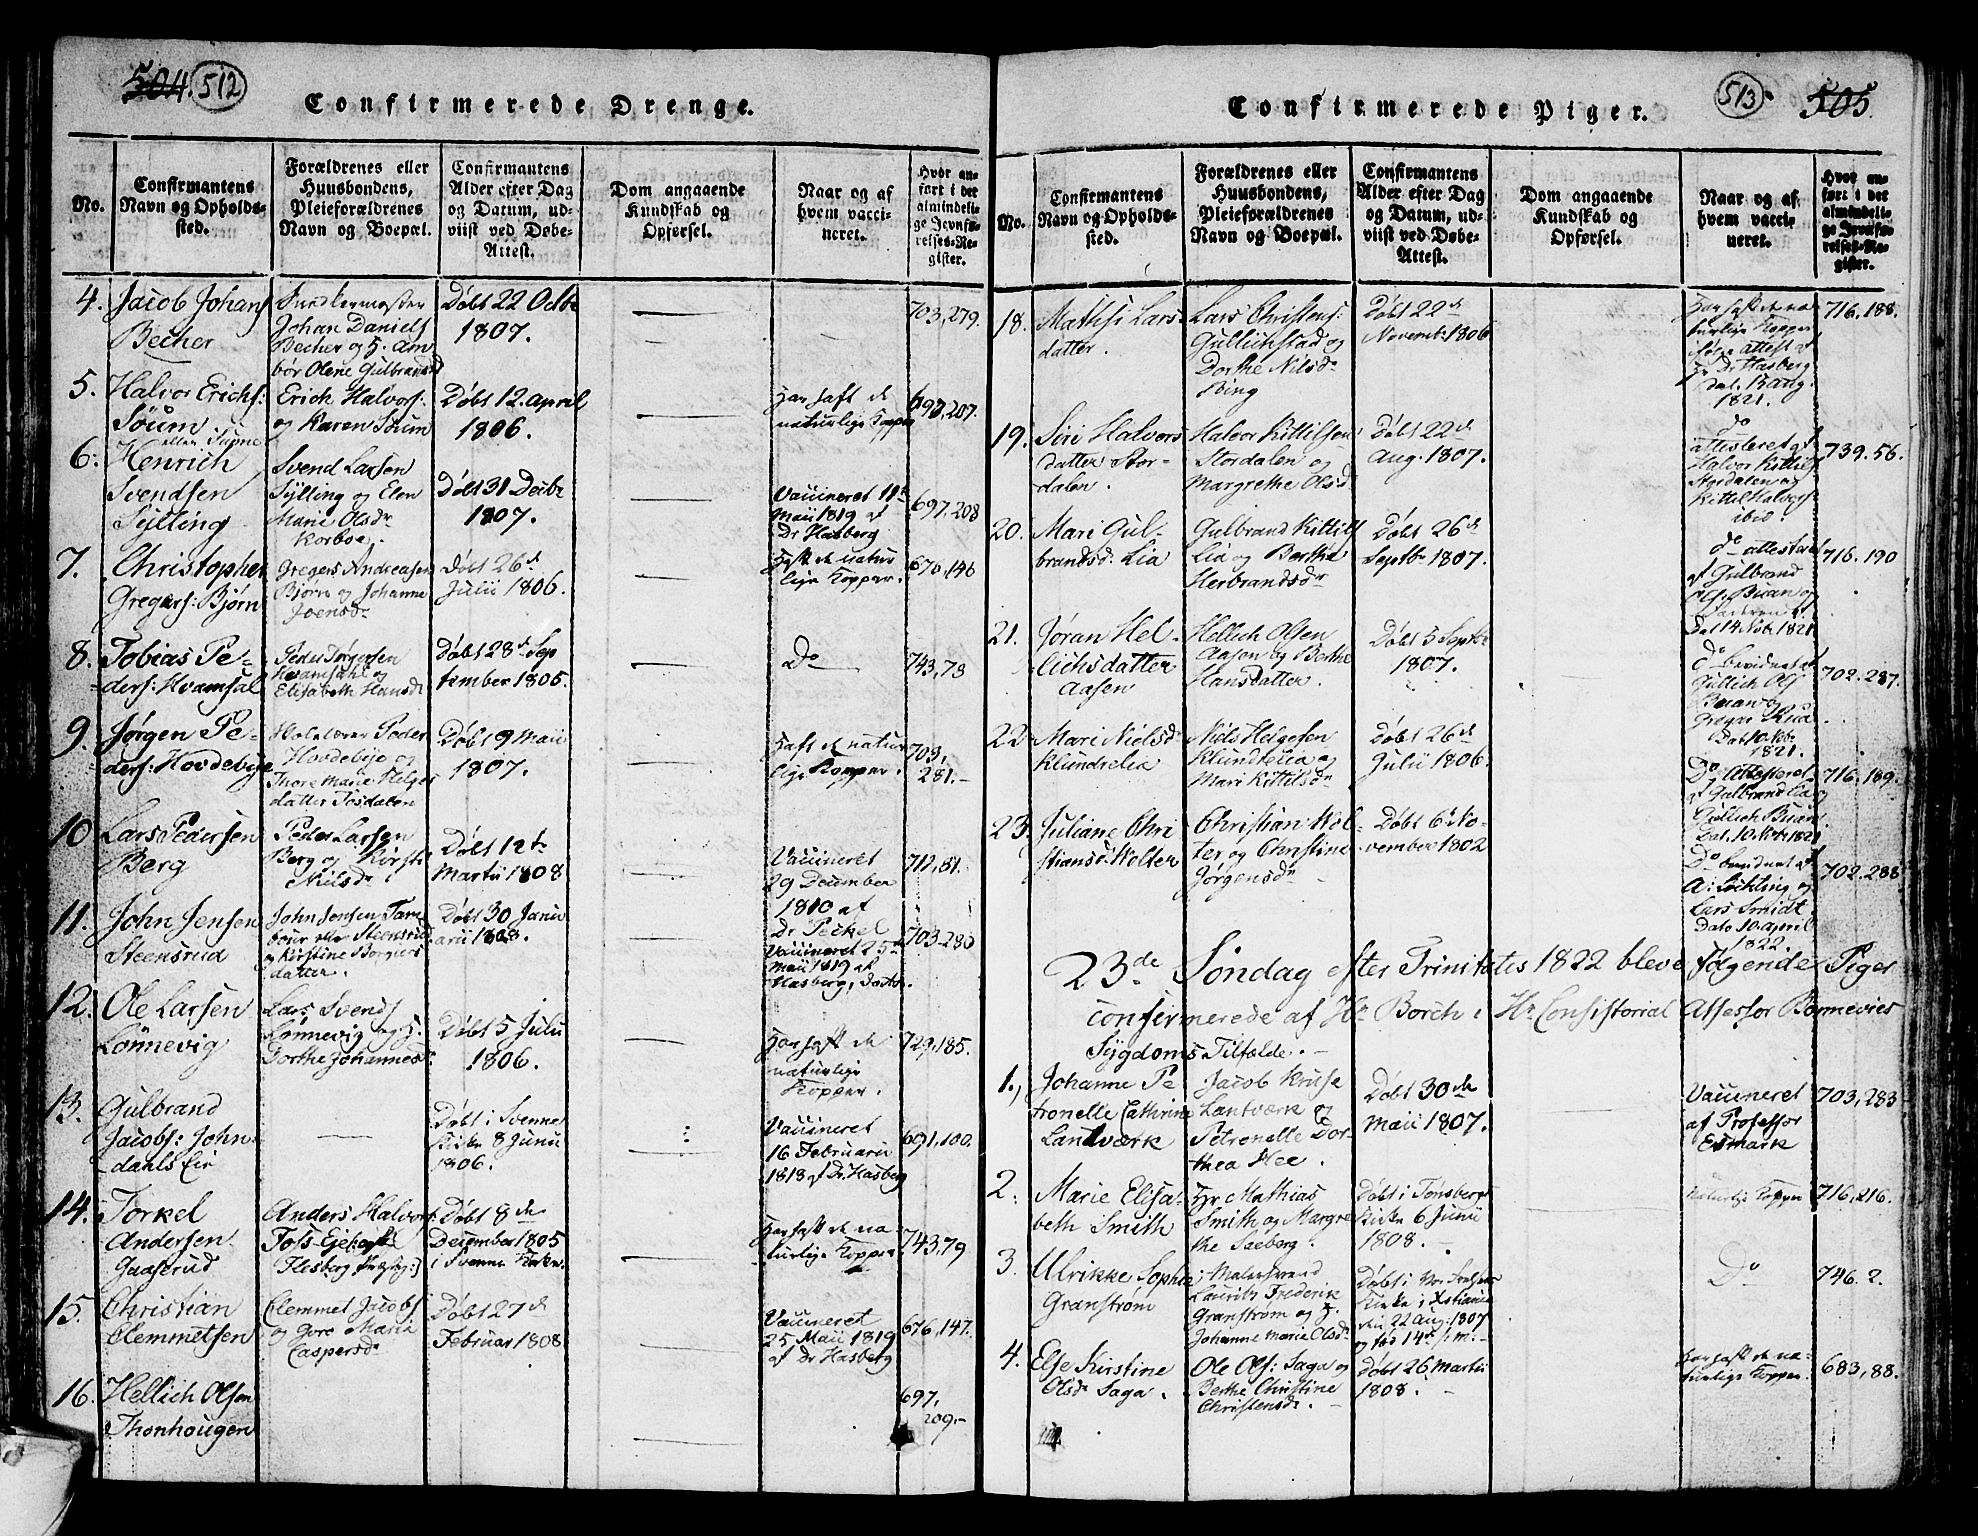 504. 512
Confirmerede Drenge.
No.
Confirmantens
Navn og Opholds-
sted.
Forældrenes eller
Huusbondens,
Pleieforældrenes
Navn og Boepæl.
Confirmantens
Alder efter Dag
og Datum, ud-
viist ved Døbe-
Attest.
Dom angaaende
Kundskab og
Opførsel.
Naar og af
hvem vacci-
neret.
Hvor an-
ført i det
almindeli-
ge Jevnfø-
relses-Re-
gister.
4. Jacob Johans
Becher
Johan Daniels
Becher og
Olene Gulbrandsd
Døbt 22 Octbr
1807.
703,279.
5. Halvor Erichs:
Søum
Erich Halvors:
og Karen Søum
Døbt 12. april
1806.
Har haft de
naturlige Kopper
697,207.
6. Henrich
Svendsen
Sylling
Svend Larsen
Sylling og Elen
Marie Olsdr
Korboe.
Døbt 31 Decbr
1807.
Vaccineret 11te
Maii 1819 af
Dr Hasberg
697,208
7. Christopher
Gregers: Bjørn
Gregers Andreasen
Bjørn og Johanne
Joensdr
Døbt 26d
Julii 1806.
Haft de natur
lige Kopper.
670,146
8. Tobias Pe-
ders: Hvamsal
Peder Jørgensen
Hvamsahl og
Elisabeth Hansd
Døbt 28d Sep
tember 1805.
Do
743,73
9. Jørgen Pe-
ders: Hovdebye
Peder
Hovdebye og
Thore Marie Helges
datter Tosdalen
Døbt 9 Maii
1807.
Haft de natur
lige Kopper.
703,
281.-
10 Lars Pedersen
Berg
Peder Larsen
Berg og Kirsti
Nielsdr
Døbt 12t
Martii 1808
Vaccineret
29 December
1810 af
Dr Peckel
712,81.
11. John Jensen
Steensrud
John Jensen Tam
bour eller Steensrud
og Kirstine Borgers
datter.
Døbt 30 Janu
arii 1808.
Vaccineret 25de
Maii 1819 af
Hasberg, Doctor.
703-280
12. Ole Larsen
Lønnevig
Lars Svends
Lønnevig og
Dorthe Johannesd:
Døbt 5 Julii
1806.
Har haft de
naturlige
Kopper.
729,185.
13. Gulbrand
Jacobs: John
dahls Eie
Døbt i Svenne
Kirke 8 Junii
1806.
Vaccineret
16 Februarii
1818 af Dr. Hasberg
691,100.
14. Torkel
Andersen
Gaaserud
Anders Halvors
Fos-Eje
Flesberg
Døbt 8de
December 1805
i Svenne Kirke.
Har haft de na-
turlige Kopper
743,79
15. Christian
Clemmetsen
Clemmet Jacobs
og Gore Maria
Caspersdr
Døbt 27d
Februar 1808
Vaccineret
25 Maii 1819
af Dr Hasberg
676,147.
16. Hellich Olsen
Thonhougen
697,
209.-
513. 505.
Confirmerede Piger.
No.
Confirmantens
Navn og Opholds-
sted.
Forældrenes eller
Huusbondens,
Pleieforældrenes
Navn og Boepæl.
Confirmantens
Alder efter Dag
og Datum, ud-
viist ved Døbe-
Attest.
Dom angaaende
Kundskab og
Opførsel.
Naar og af
hvem vacci-
neret.
Hvor an-
ført i det
almindeli-
ge Jevnfø-
relses-Re-
gister.
18. Mathsi Lars-
datter.
Lars Christens:
Gullichstad og
Dorthe Nilsdr
Bing
Døbt 22d
Novembr 1806
Har haft de na-
turlige Kopper
ifølge attest af
Hr Dr Hasberg
dat. 13 aug.
1821.
716,188.
19. Siri Halvors
datter Stor-
dalen.
Halvor Kittilsen
Stordalen og
Margrethe Olsd
Døbt 22d
Aug. 1807.
do
attesteret af
Halvor Kittils
Stordalen og
Kittil Halvors
ibid.
739.56.
20. Mari Gul-
brandsd. Lia
Gulbrand Kittils
Lia og Berthe
Herbrandsdr
Døbt 26d
Septbr 1807.
do attestered
af Gulbrand
Dat 14 1821
716.190
21. Jøran Hel-
lichsdatter
Aasen
Hellich Olsen
Aasen og Berthe
Hansdatter.
Døbt 5 Septbr
1807.
do bevidnet af
Gullich Ols
Buan og
Gregar Rua
Dat. 10
1821.
702.287.
22 Mari Nielsdr
Klundrelia
Niels Helgesen
Klundrelia og
Mari Kittilsdr
Døbt 26d
Julii 1806.
Do Attesteret
af Gulbrand Lia og
Gullich Buan
Dat. 10. 1821
716.189.
23. Juliane Chri
stiansd. Wolter
Christian Wol-
ter og Christine
Jørgensdr
Døbt 6 No-
vember 1802
Do bevidnet af
A: Løchting og
Lars Smidt
Dato 10. april
1822.
702.288
23de Søndag efter Trinitates 1822 bleve følgende Piger
confirmerede af Hr Borch i Hr Consistorial Assessor Bonnevies
Sygdoms Tilfælde. -
1.) Johanne Pe
tronelle Cathrine
Landtværk
Jacob Kruse
Lantværk og
Petronelle Dor-
thea Hee.
Døbt 30de
Maii 1807.
Vaccineret
af Professor
Esmark
703,283
2. Marie Elisa-
beth Smith
Hr Mathias
Smith og Margre
the Seeberg.
Døbt i Tønsberg
Kirke 6 Junii
1808.
naturlige Kopper
716,216.
3. Ulrikke Sophie
Granstrøm
Maler
Laurits Frederik
Granstrøm og
Johanne Marie Olsdr
Døbt i Vor Frelsers
Kirke i Xstiania
den 22 Aug. 1807
og fød 14de s. m. -
Do
746.2.
4. Else Kirstine
Olsdr Saga.
Ole Ols: Saga og
Berthe Christine
Christensdr.
Døbt 26 Martii
1808.
Har haft de na-
turlige Kopper.
683,88.